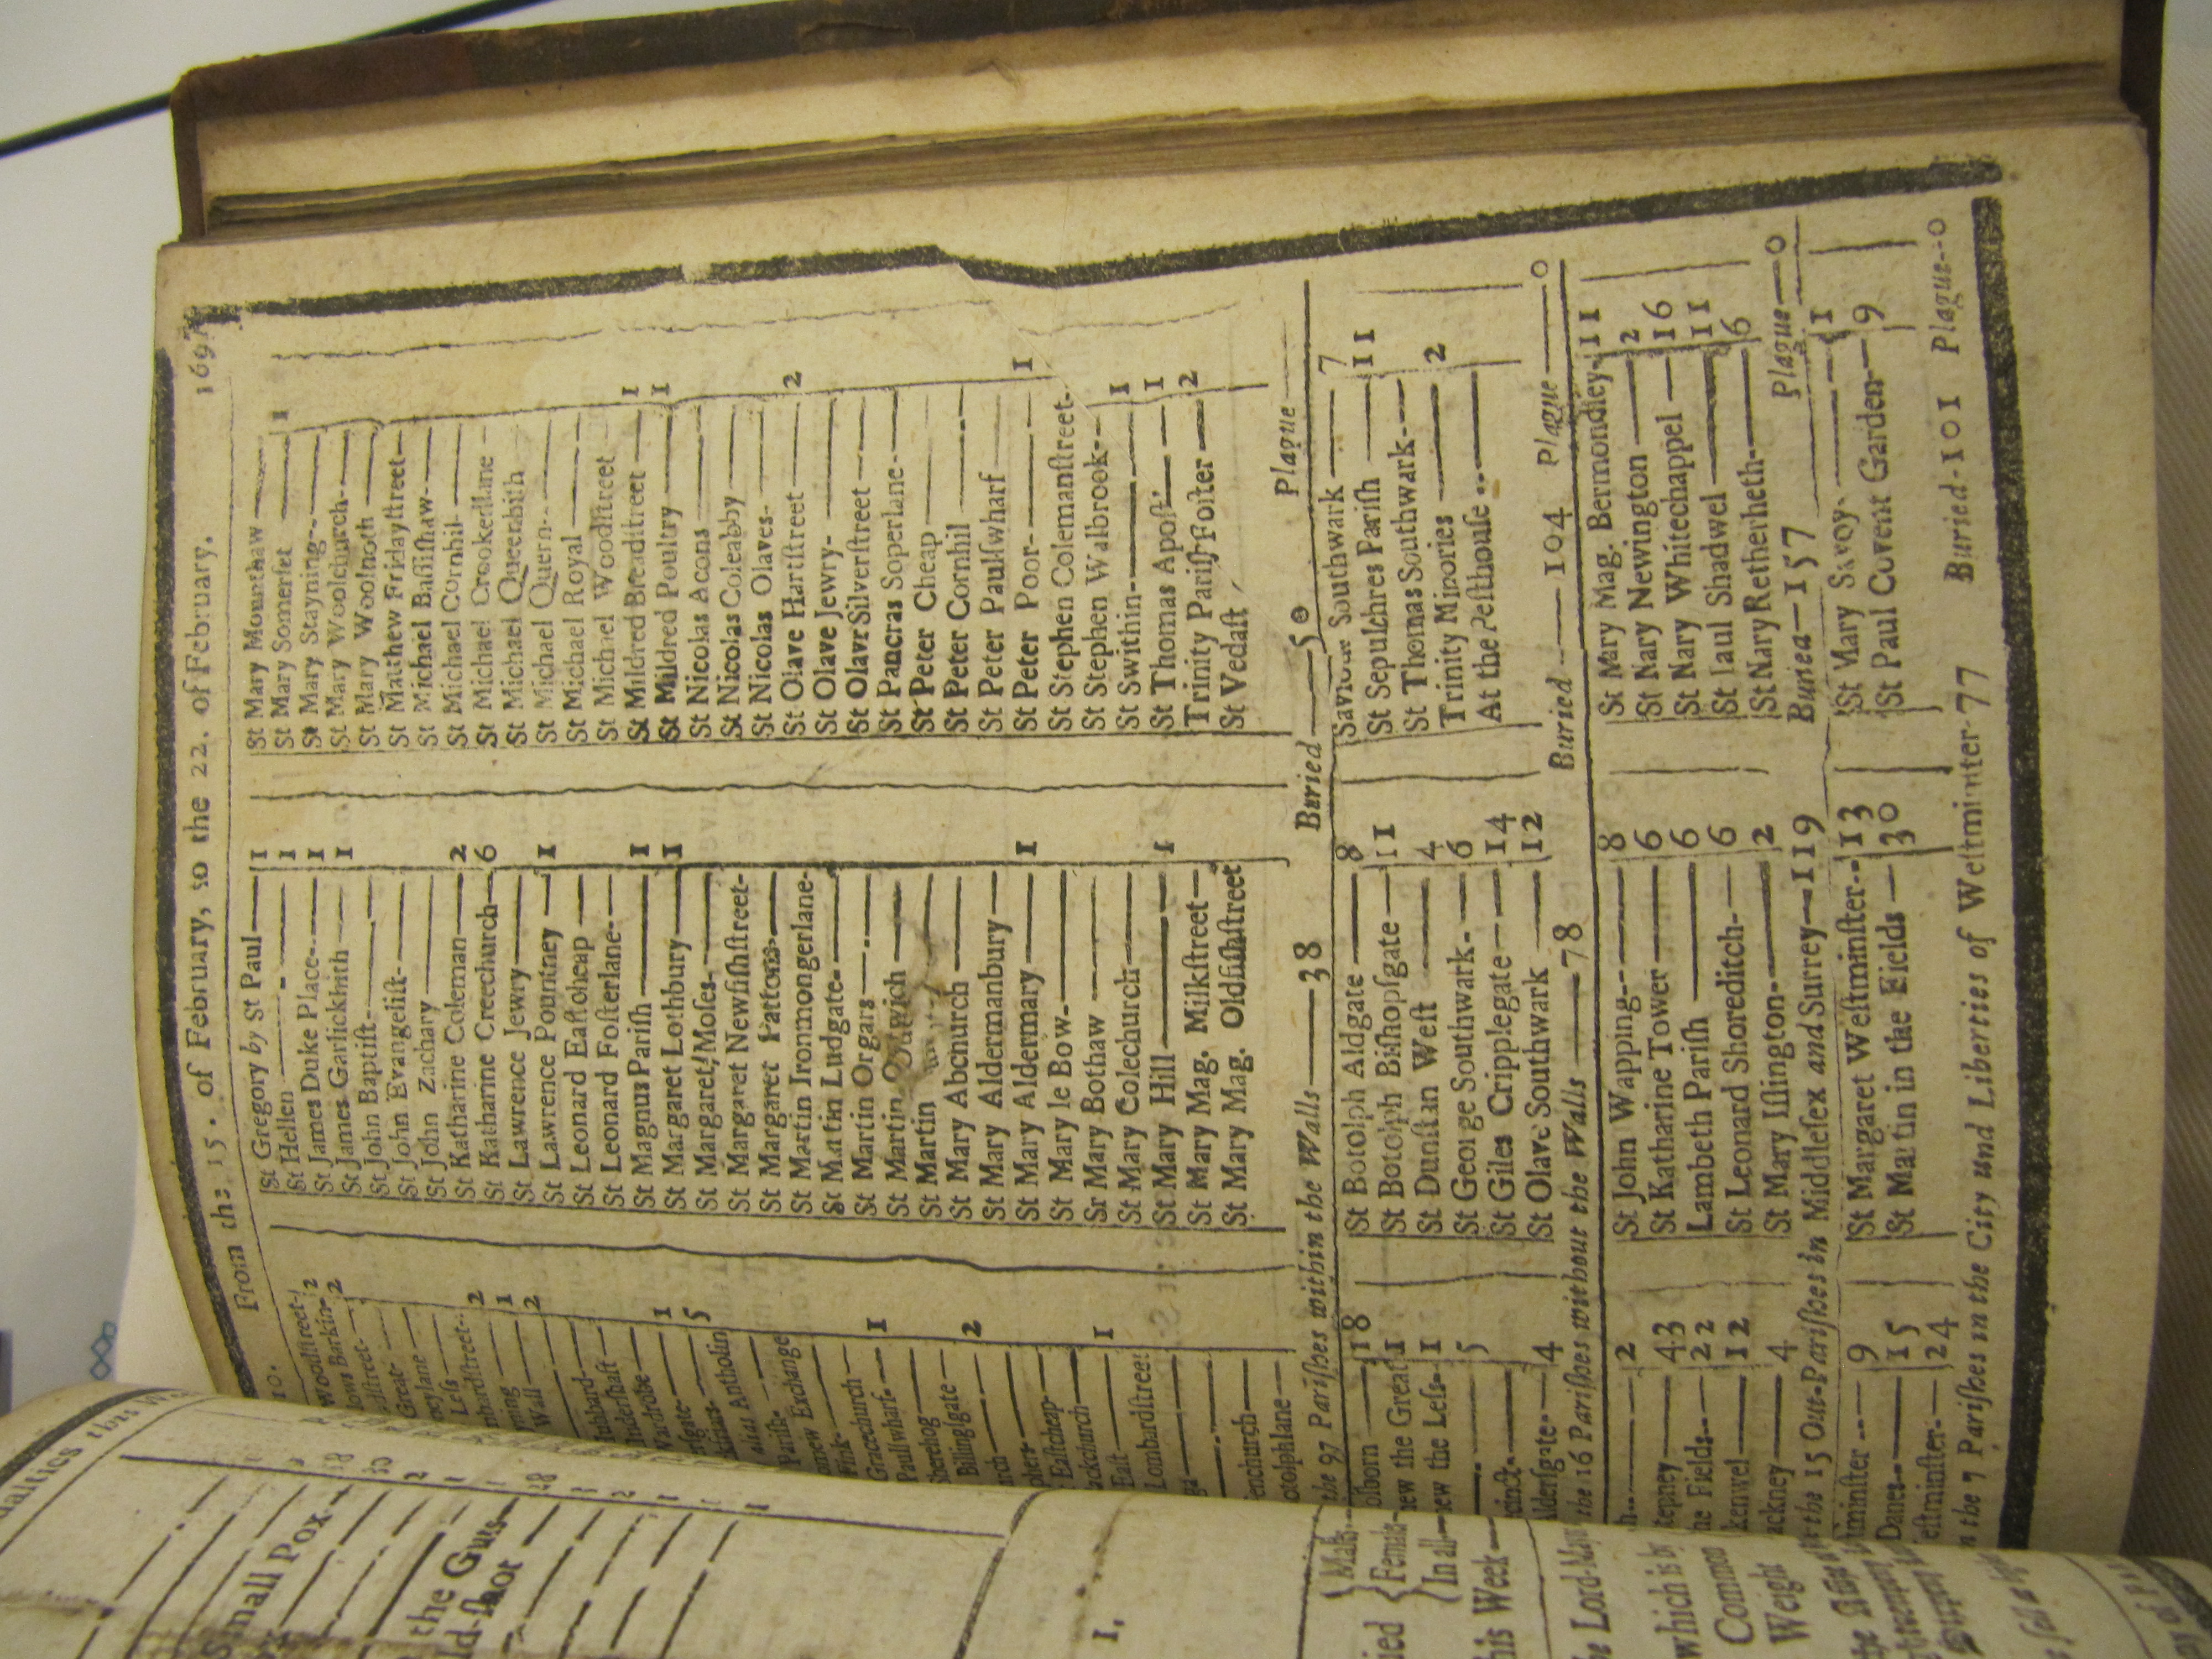 From the 15. of February, to the 22. of February. 169
10.
Woodstreet- 2
lows Barkin- 2
Great-
Less-
nbardstreet-- 2
ning 1
Wall 2
Hubbard-
ndershaft
Wardrobe 1
rsgate- 5
alias Antholin
Parish-
mew Exchange
Fink-
Gracechurch-
Paulswharf- 1
Sherehog
Billingsgate 2
rch
Eastcheap
ackchurch 1
East
Lombardstreet
enchurch
otolphlane
St Gregory by St Paul 1
St Hellen 1
St James Duke Place-- 1
St James Garlickhith 1
St John Baptist-
St John Evangelist-
St John Zachary
St Katharine Coleman 2
St Katharine Creechurch 6
St Lawrence Jewry
St Lawrence Pountney 1
St Leonard Eastcheap
St Leonard Fosterlane-
St Magnus Parish 1
St Margaret Lothbury 1
St Margaret Moses-
St Margaret Newfishstreet-
St Margaret Pattons
St Martin Ironmongerlane-
St Martin Ludgate-
St Martin Orgars
St Martin Outwich
St Martin
St Mary Abchurch
St Mary Aldermanbury
St Mary Aldermary 1
St Mary le Bow-
Sr Mary Bothaw
St Mary Colechurch
St Mary Hill 1
St Mary Mag. Milkstreet
St Mary Mag. Oldfishstreet
St Mary Mounthaw
St Mary Somerset 1
St Mary Stayning--
St Mary Woolchurch-
St Mary Woolnoth
St Matthew Fridaystreet
St Michael Bassishaw-
St Michael Cornhil
St Michael Crookedlane
St Michael Queenhith
St Michael Quern--
St Michael Royal
St Michael Woodstreet
St Mildred Breadstreet 1
St Mildred Poultry 1
St Nicolas Acons
St Nicolas Coleabby
St Nicolas Olaves-
St Olave Hartstreet 2
St Olave Jewry-
St Olavr Silverstreet
St Pancras Soperlane-
St Peter Cheap
St Peter Cornhil
St Peter Paulswharf
St Peter Poor- 1
St Stephen Colemanstreet-
St Stephen Walbrook--
St Swithin- 1
St Thomas Apost. 1
Trinity Parish Foster 2
St Vedast
the 97 Parishes within the Walls 38 Buried 50 Plague
olborn 18
new the Great 1
new the Less- 1
5
ldersgate- 4
St Botolph Aldgate 8
St Botolph Bishopsgate 11
St Dunstan West 4
St George Southwark- 6
St Giles Cripplegate 14
St Olave Southwark 12
Saviour Southwark 7
St Sepulchres Parish 11
St Thomas Southwark-
Trinity Minories 2
At the Pesthouse
the 16 Parishes without the Walls 78 Buried 104 Plague 0
2
tepney 43
he Fields- 22
kenwel 12
ackney 4
St John Wapping-- 8
St Katharine Tower 6
Lambeth Parish 6
St Leonard Shoreditch- 6
St Mary Islington- 2
St Mary Mag. Bermondley- 11
St Nary Newington 2
St Nary Whitechappel 16
St Paul Shadwel 11
St Nary Retherheth- 6
the 15 Out-Parishes in Middlesex and Surrey 119 Buried 157 Plague 0
9
Danes- 15
estminster- 24
St Margaret Westminster-- 13
St Martin in the Fields 30
St Mary Savoy 1
St Paul Covent Garden- 9
n the 7 Parishes in the City and Liberties of Westminster 77 Buried 101 Plague--0
Small Pox
the Guts
ld-shot
Male
Female
In all
his Week
he Lord-May
which is by
Common
Weight